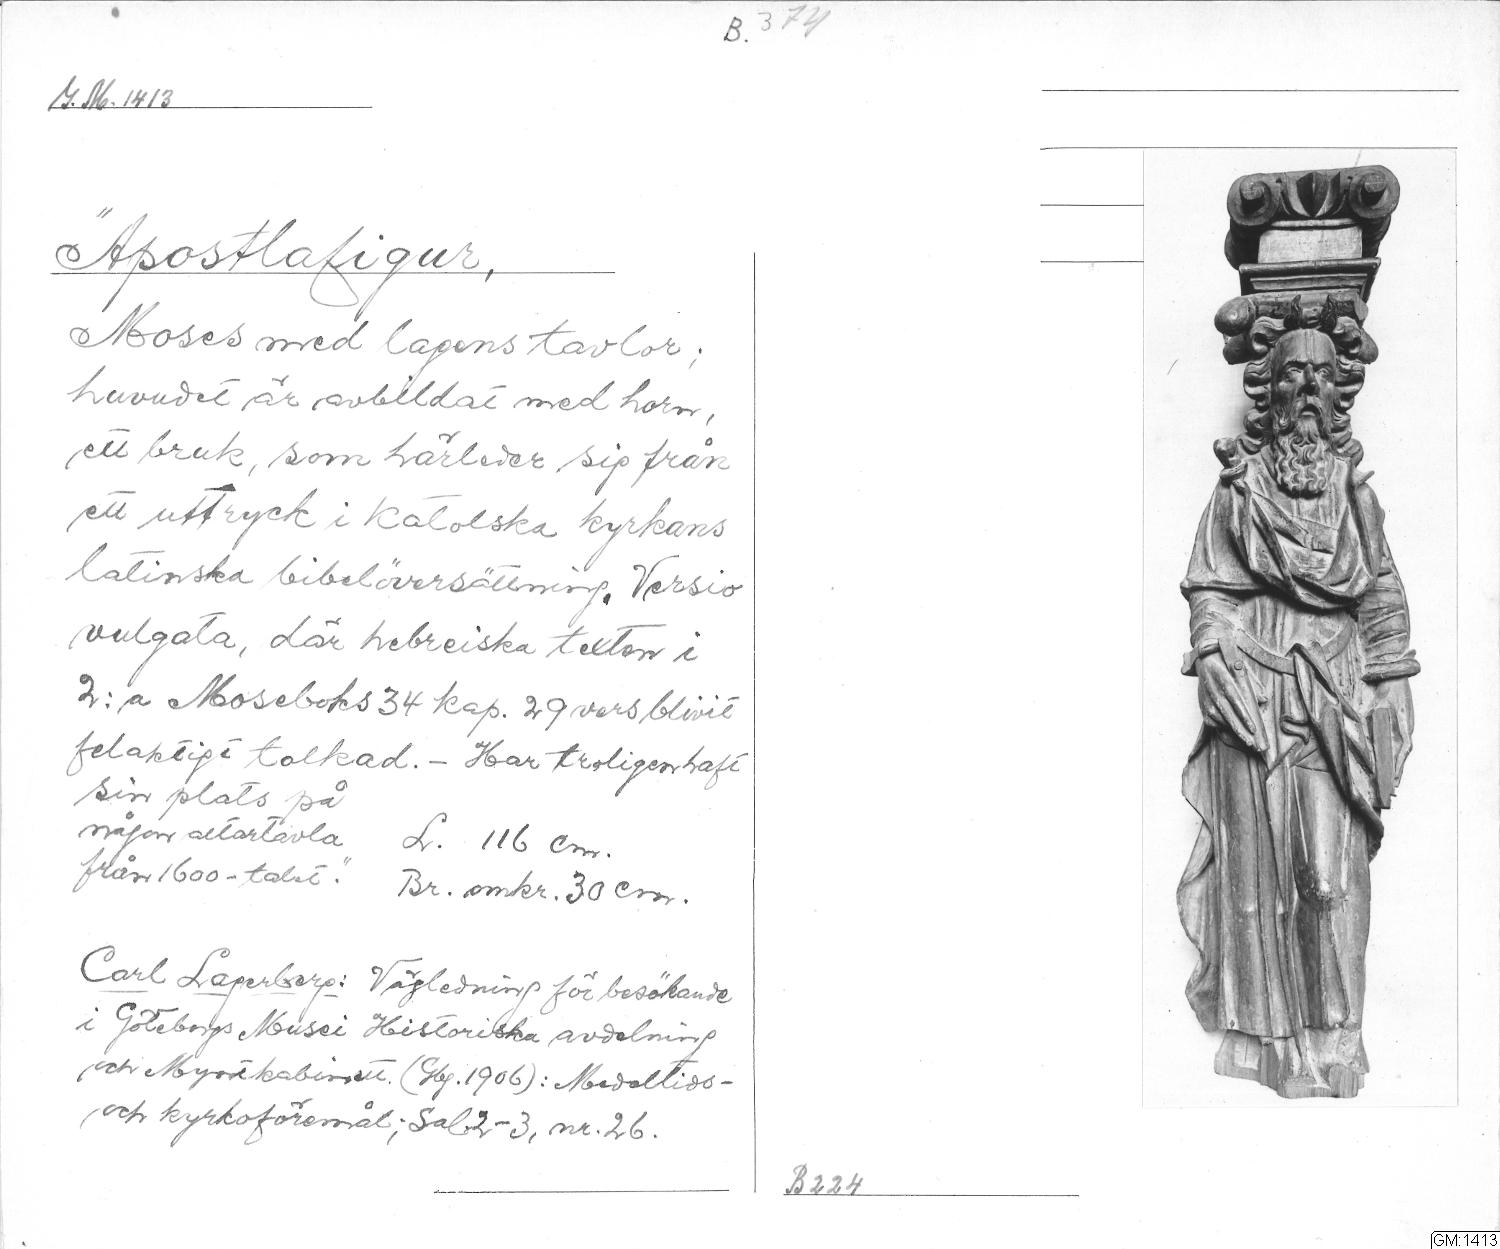 B. 374
G.M. 1413
"Apostlafigur,
Moses med lagens tavlor;
huvudet är avbildat med horn,
ett bruk, som härleder sig från
ett uttryck i katolska kyrkans
latinska bibelöversättning. Versio
vulgata, där hebreiska texten i
2:a Moseboks 34 kap. 29 vers blivit
felaktigt tolkad. – Har troligen haft
sin plats på
någon altartavla
från 1600-talet."
L. 116 cm.
Br. omkr. 30 cm.
Carl Lagerberg: Vägledning för besökande
i Göteborgs Musei Historiska avdelning
och Myntkabinett. (Gbg. 1906): Medeltids-
och kyrkoföremål; Sal 2-3, nr. 26.
B224
GM:1413